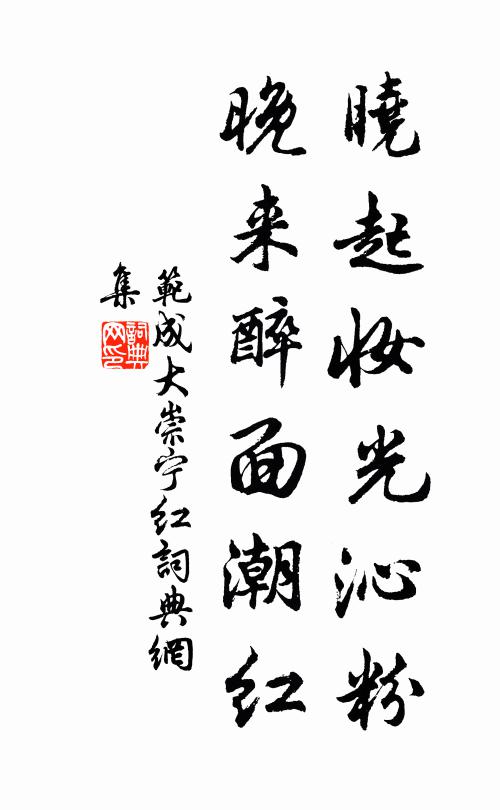 曉起妝光沁粉
晚来醉面潮紅
範成大崇宁红詞典網
集
詞典网印